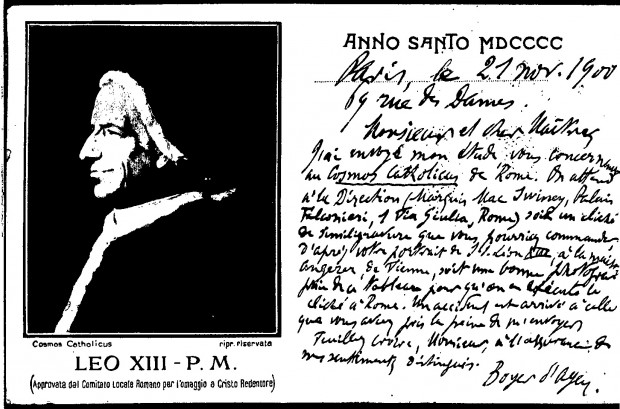 Cosmos Catholicus
ripr. riservata
LEO XIII - P. M.
(Approvata dal Comitato Locale Romano per l'omaggio a Cristo Redentore)
ANNO SANTO MDCCCC
Paris, le 21 nov. 1900
69 rue des Dames.
Monsieur et cher Maître,
J'ai envoyé mon étude vous concernant
au Cosmos Catholicus de Rome. On attend
à la Direction (Marquis Mac Swiney, Palais
Falconieri, 1 Via Giulia, Rome) soit un cliché
de similigravure que vous pourriez commander
d'après votre portrait de S. S. Léon XIII, à la maison
Angerer, de Vienne, soit une bonne photographie
prise du tableau pour qu'on en exécute le
cliché à Rome. Un accident est arrivé à celle
que vous avez pris la peine de m'envoyer
Veuillez croire, Monsieur, à l'assurance de
mes sentiments distingués.
Boyer d'Agen.